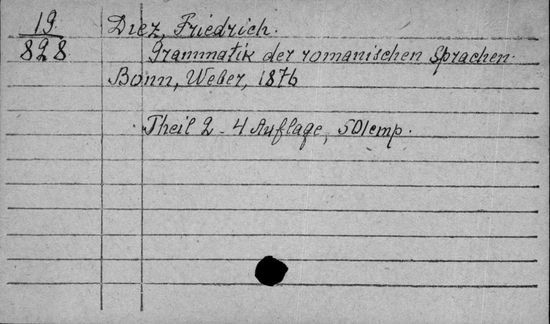 19
828
Diez, Friedrich.
Grammatik der romanischen Sprachen.
Bonn, Weber, 1876
Theil 2 - 4 Auflage, 501 cmp.